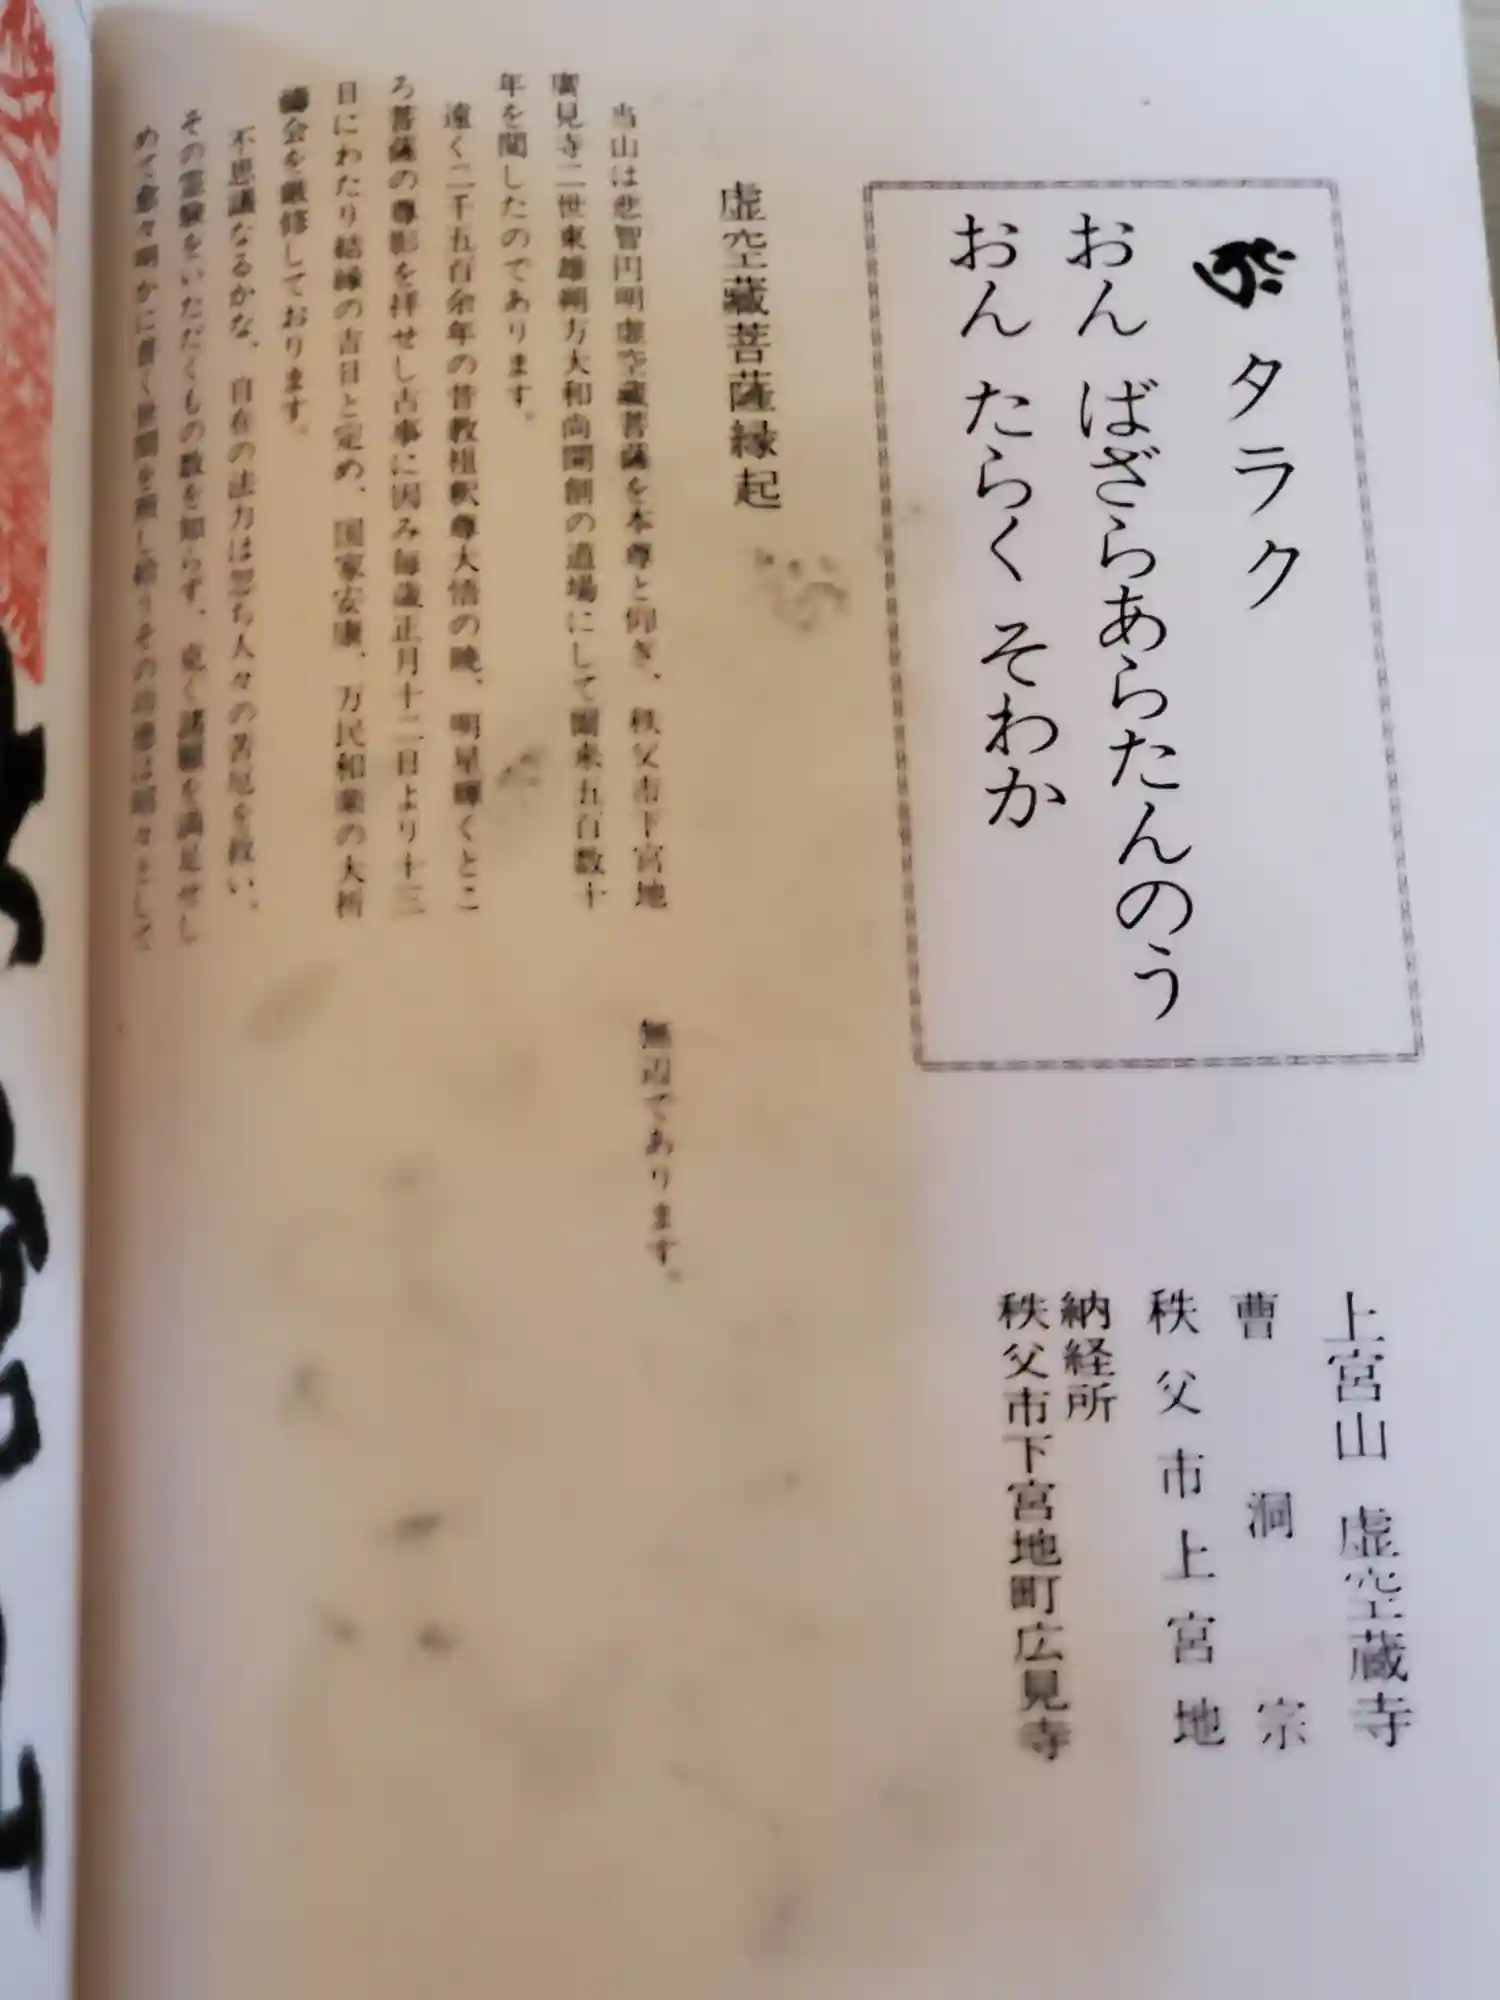 タラク
おん ばざらあらたんのう
おん たらく そわか
虚空蔵菩薩縁起
当山は悲智円明虚空蔵菩薩を本尊と仰ぎ、秩父市下宮地
廣見寺二世東雄朔方大和尚開創の道場にして爾来五百数十
年を閲したのであります。
遠く二千五百余年の昔教祖釈尊大悟の暁、明星輝くとこ
ろ菩薩の尊影を拝せし古事に因み毎歳正月十二日より十三
日にわたり結縁の吉日と定め、国家安康、万民和楽の大祈
祷会を厳修しております。
不思議なるかな、自在の法力は忽ち人々の苦厄を救い、
その霊験をいただくもの数を知らず、克く諸願を満足せし
めて愈々明かに普く世間を照し給うその功徳は昭々として
無辺であります。
上宮山 虚空蔵寺
曹洞宗
秩父市上宮地
納経所
秩父市下宮地町広見寺